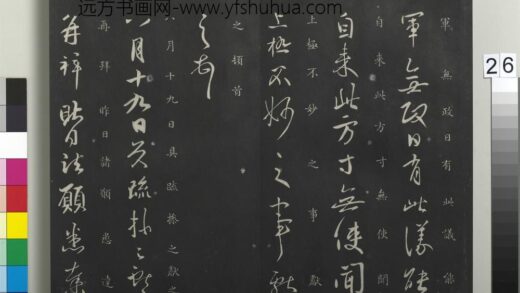 远方书画 www.yfshuhua.com
軍無政日有此議能
軍無政日有此議能
自來此方寸無使聞
自來此方寸無使聞
上極不妙之事獻
上極不妙之事獻
之頓首
之頓首
月十九日具疏操之獻之
月十九日具疏操之獻
再拜昨日諸願悉達
再拜昨日諸願悉達
26